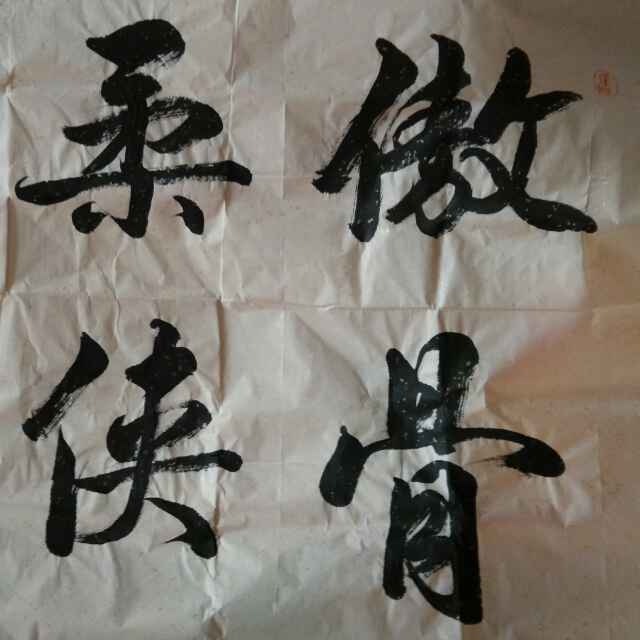 傲骨
柔侠